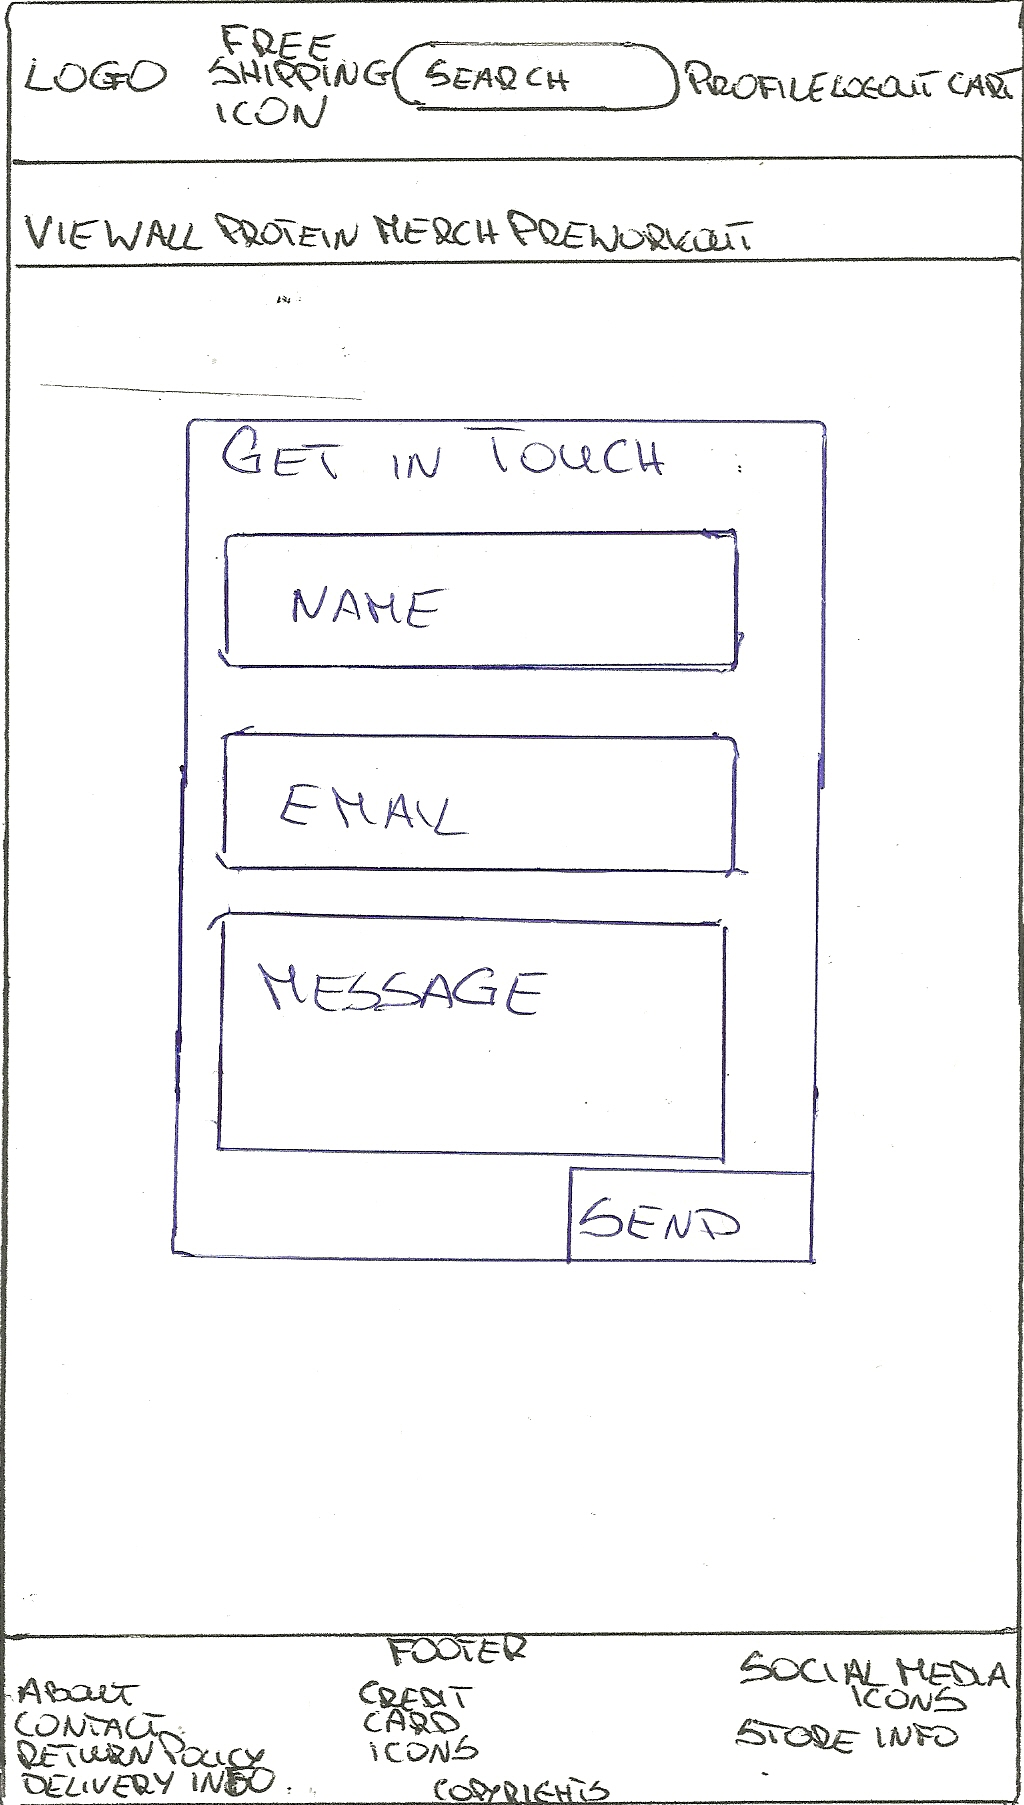 LOGO
FREE
SHIPPING
ICON
SEARCH
PROFILE LOGOUT CART
VIEW ALL PROTEIN MERCH PREWORKOUT
GET IN TOUCH
NAME
EMAIL
MESSAGE
SEND
FOOTER
ABOUT
CONTACT
RETURN POLICY
DELIVERY INFO
CREDIT
CARD
ICONS
COPYRIGHTS
SOCIAL MEDIA
ICONS
STORE INFO